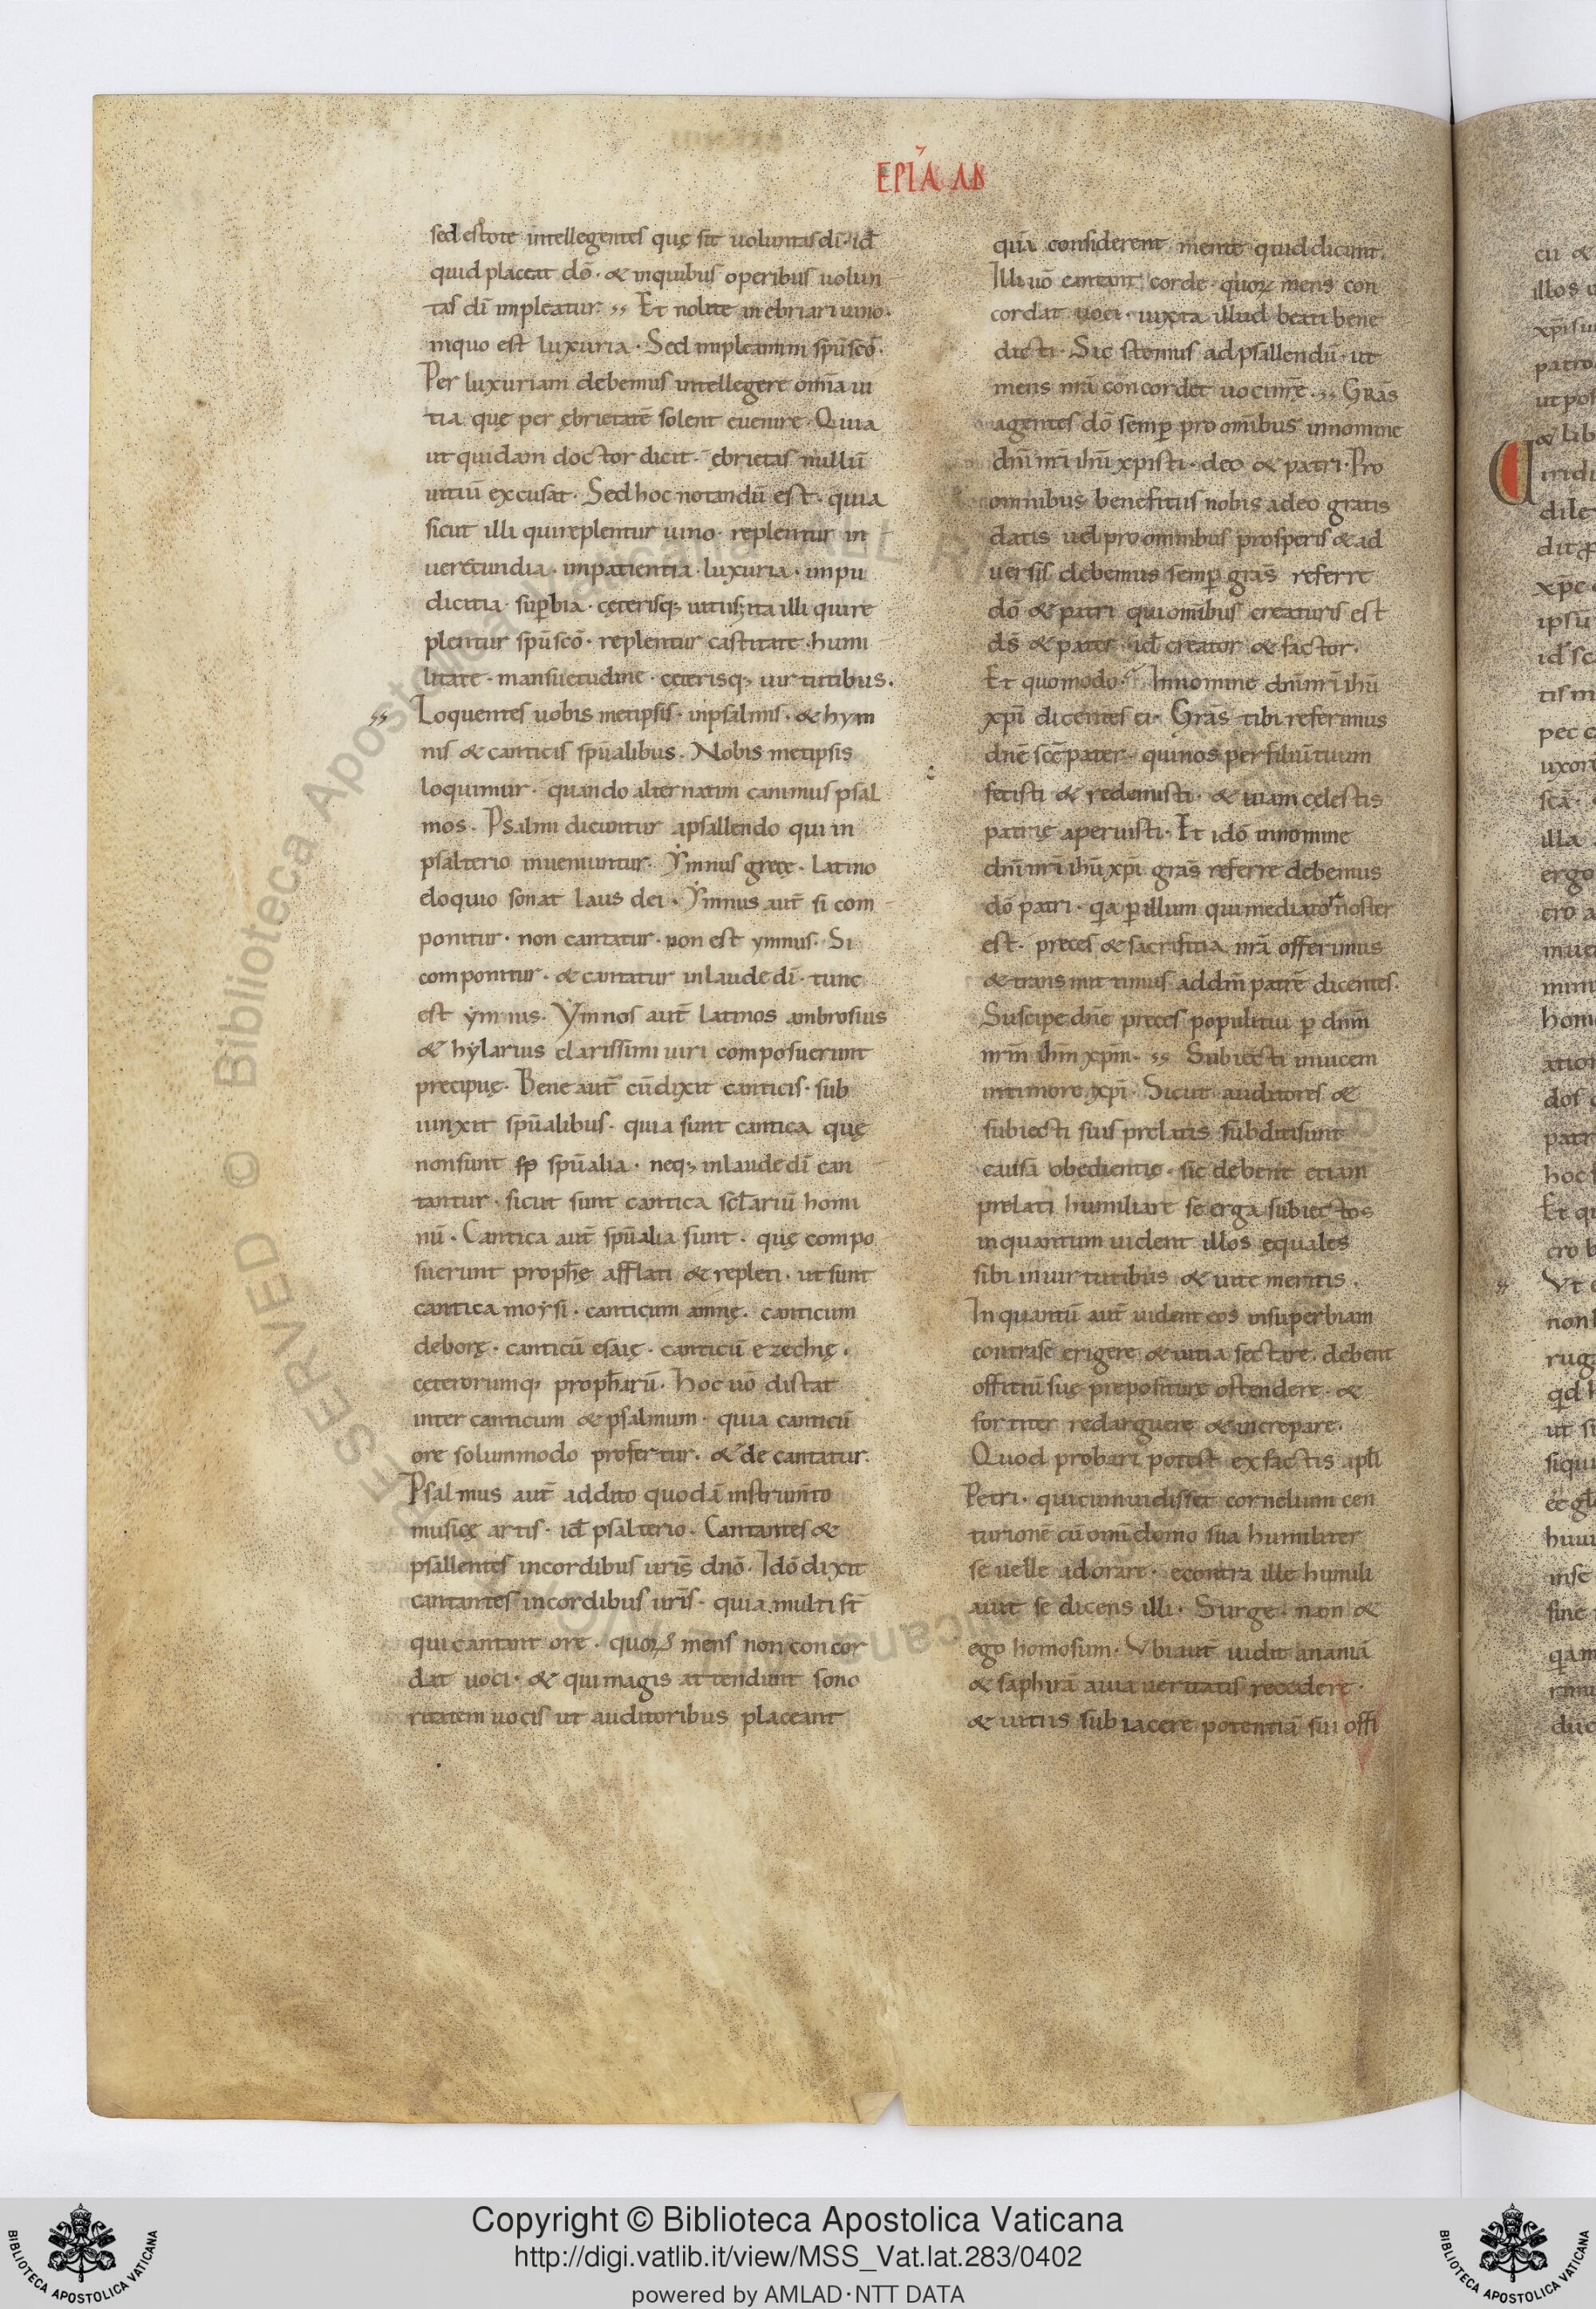 EPĪA AD
sed estote intellegentes quę sit uoluntas dī· id̄
quid placeat dō· & in quibus operibus uolun
tas dī impleatur· ,, Et nolite inebriari uino·
in quo est luxuria· Sed impleamini sp̄u sc̄o·
Per luxuriam debemus intellegere om̄ia ui
tia quę per ębrietatē solent euenire· Quia
ut quidam doctor dicit· ębrietas nullū
uitiū excusat· Sed hoc notandū est· quia
sicut illi qui replentur uino· replentur in
uerecundia· impatientia· luxuria· impu
dicitia· suꝑbia· cęterisq; uitiis; ita illi qui re
plentur sp̄u sc̄o· replentur castitate· humi
litate· mansuetudine· ceterisq; uirtutibus·
,, Loquentes uobis metipsis· in psalmis· & hym
nis & canticis sp̄ualibus· Nobis metipsis
loquimur· quando alternatim canimus psal
mos· Psalmi dicuntur a psallendo qui in
psalterio inueniuntur· Ẏmnus gręcę· latino
eloquio sonat laus dei· Ẏmnus aut̄ si com
ponitur· non cantatur· non est ymnus· Si
componitur· & cantatur in laude dī· tunc
est ẏmnus· Ẏmnos aut̄ latinos ambrosius
& hẏlarius clarissimi uiri composuerunt
precipuę· Bene aut̄ cū dixit canticis· sub
iunxit sp̄ualibus· quia sunt cantica quę
non sunt sp̄ualia· neq; in laude dī can
tantur· sicut sunt cantica scl̄ariū homi
nū· Cantica aut̄ sp̄ualia sunt· quę compo
suerunt proph̄e afflati & repleti· ut sunt
cantica moẏsi· canticum annę· canticum
deborę· canticū esaię· canticū ezechię·
cęterorumq; proph̄arū· Hoc uō distat
inter canticum & psalmum· quia canticū
ore solummodo profertur· & decantatur·
Psalmus aut̄ addito quodā instrum̄to
musicę artis· id̄ psalterio· Cantantes &
psallentes in cordibus uris̄ dn̄o· Idō dixit
cantantes in cordibus uris̄· quia multi st̄
qui cantant ore· quoꝝ mens non concor
dat uoci· & qui magis attendunt sono
ritatem uocis ut auditoribus placeant
quā considerent mente quid dicunt·
Illi uō cantant corde· quoꝝ mens con
cordat uoci· iuxta illud beati bene
dicti· Sic stemus ad psallendū· ut
mens nrā concordet uoci nrē· ,, Grās
agentes dō semꝑ pro om̄ibus in nomine
dn̄i nrī ihū xpisti· deo & patri· Pro
omnibus benefitiis nobis a deo gratis
datis uel pro omnibus prosperis & ad
uersis debemus semꝑ grās referre
dō & patri qui om̄ibus creaturis est
dś & pater id̄ creator & factor·
Et quomodo· In nomine dn̄i nrī ihū
xpī dicentes ei· Grās tibi referimus
dn̄e sc̄e pater· qui nos per filiū tuum
fecisti & redemisti· & uiam cęlestis
patrię aperuisti· Et idō in nomine
dn̄i nrī ihū xpī grās referre debemus
dō patri· qa ꝑ illum qui mediator noster
est· preces & sacrifitia nrā offerimus
& transmittimus ad dm̄ patrē dicentes·
Suscipe dn̄e preces populi tui ꝑ dnm̄
nrm̄ ihm̄ xpm̄· ,, Subiecti inuicem
in timore xpī· Sicut auditores &
subiecti suis prelatis subditi sunt
causā obedientię· sic debent etiam
prelati humiliare se erga subiectos
in quantum uident illos ęquales
sibi in uirtutibus & uitę meritis·
In quantū aut̄ uident eos in superbiam
contra se erigere & uitia sectare· debent
offitiū suę prepositurę ostendere· &
fortiter redarguere & increpare·
Quod probari potest ex factis apl̄i
Petri· qui cum uidisset cornelium cen
turionē cū om̄i domo sua humiliter
se uelle adorare· econtra ille humili
auit se dicens illi· Surge· nam &
ego homo sum· Vbi aut̄ uidit ananiā
& saphirā a uia ueritatis recedere·
& uitiis subiacere potentiā sui offi
Copyright © Biblioteca Apostolica Vaticana
http://digi.vatlib.it/view/MSS_Vat.lat.283/0402
powered by AMLAD·NTT DATA